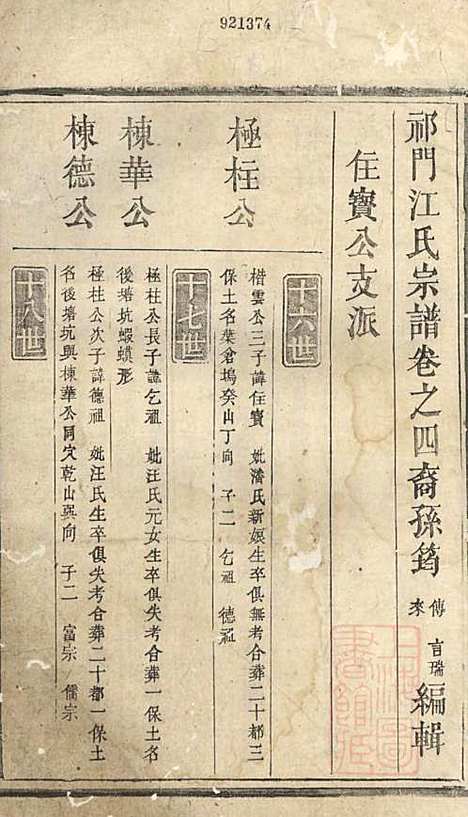 921374
祁門江氏宗譜卷之四裔孫筠
傳
來
言
瑞
編輯
住寳公支派
十六世
極柱公
楷雲公三子諱住寳 妣潘氏新娘生卒俱無考合葬二十都三
保土名葉倉塢癸山丁向 子二 乞祖 德祖
十七世
棟華公
極柱公長子諱乞祖 妣汪氏元女生卒俱失考合葬一保土名
後塘坑蝦蟆形
棟德公
極柱公次子諱德祖 妣汪氏生卒俱失考合葬二十都一保土
名後塘坑與棟華公同穴乾山巽向 子二 富宗 儒宗
十八世